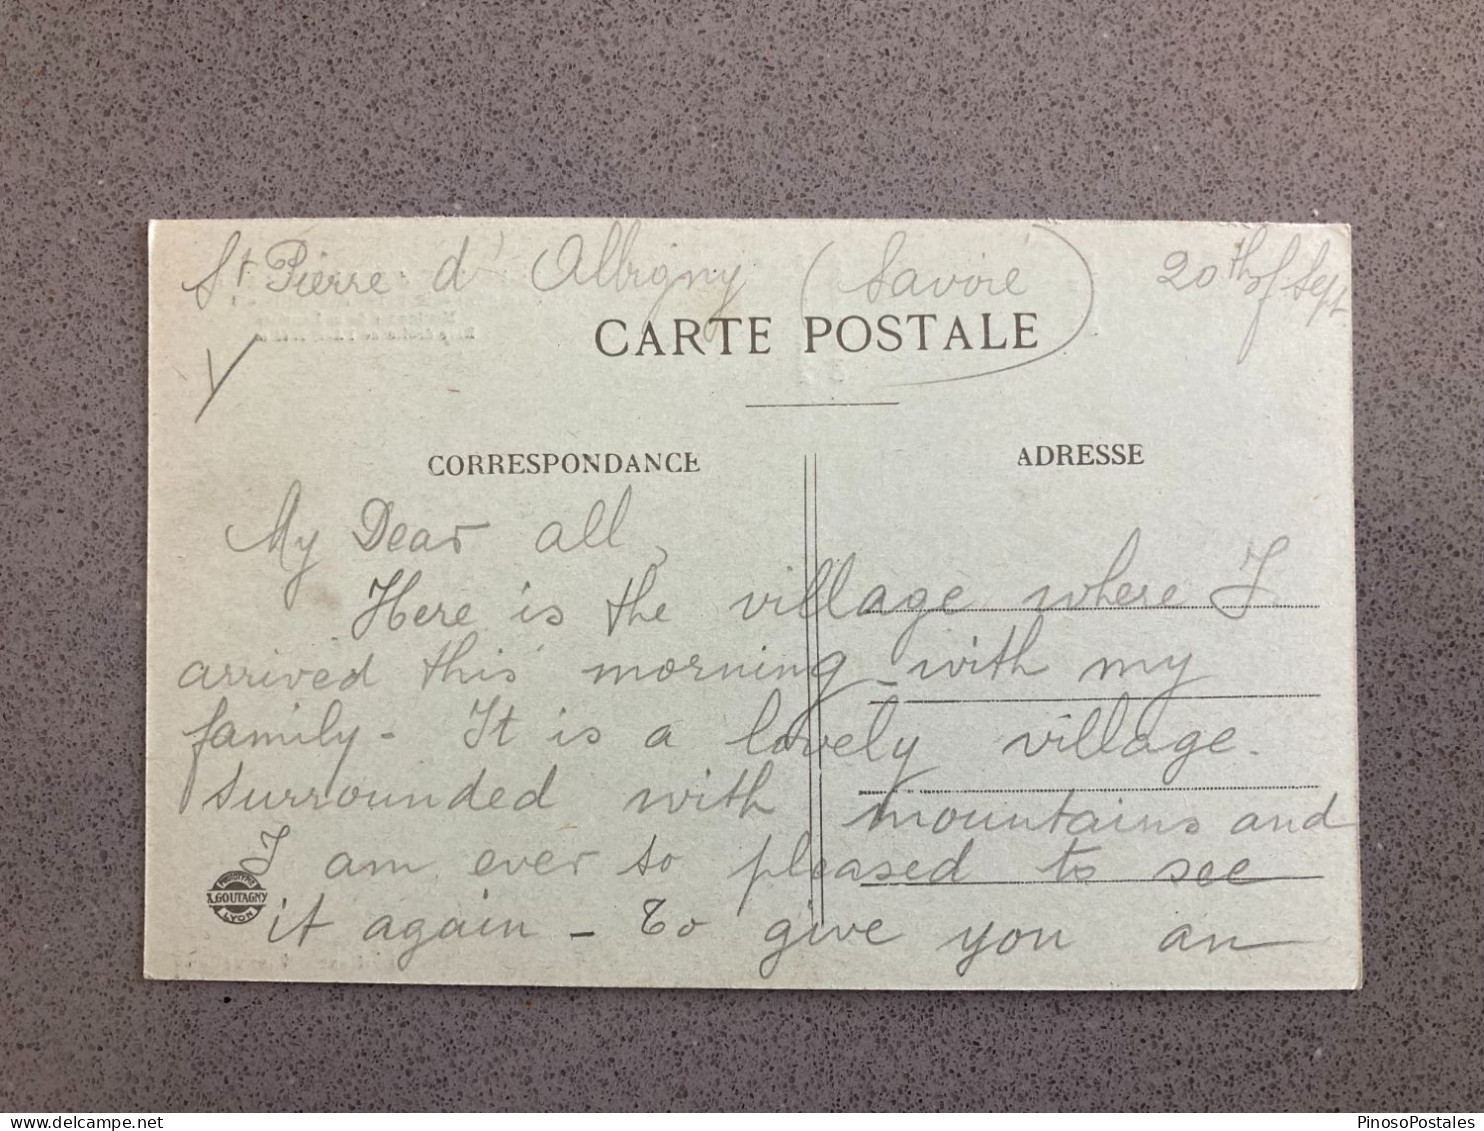 St Pierre d'Albigny (Savoie) 20th of Sept
CARTE POSTALE
CORRESPONDANCE
ADRESSE
My Dear all,
Here is the village where I
arrived this morning with my
family - It is a lovely village.
surrounded with mountains and
I am ever so pleased to see
it again - To give you an
PHOTOTYPIE
X.GOUTAGNY
LYON
PinosoPostales